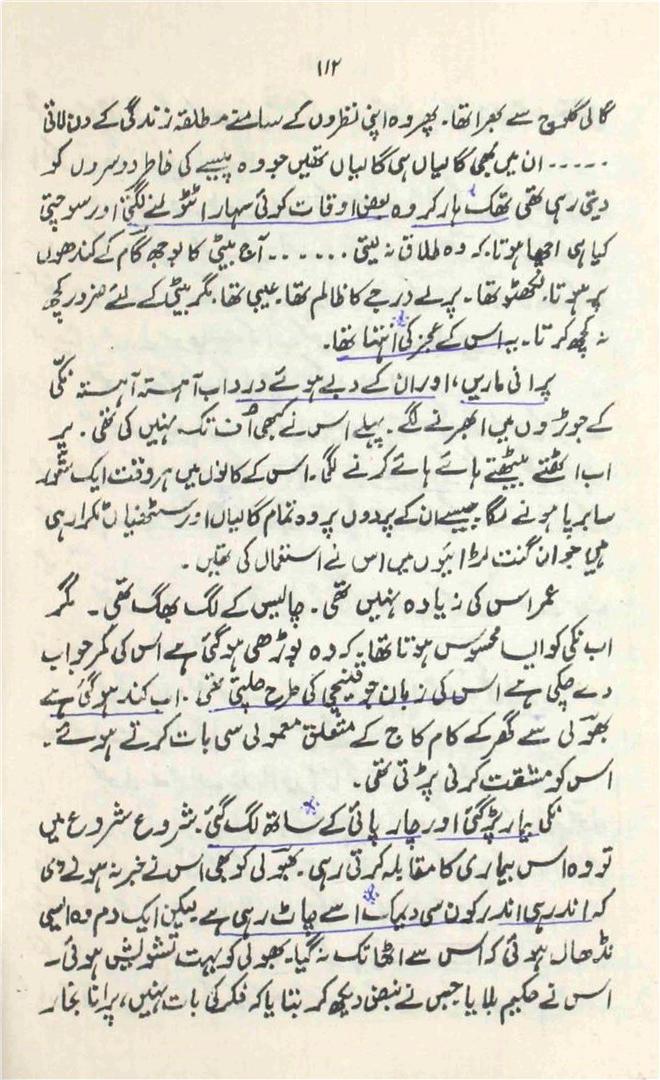 ۱۱۲
گالی گلوچ سے بھرا تھا۔ پھر وہ اپنی نظروں کے سامنے مطلقہ زندگی کے دن لاتی
۔۔۔۔۔ ان میں بھی گالیاں ہی گالیاں تھیں جو وہ پیسے کی خاطر دوسروں کو
دیتی رہی تھی تھک ہار کر وہ بعض اوقات کوئی سہارا ٹٹولنے لگتی اور سوچتی
کیا ہی اچھا ہوتا، کہ وہ طلاق نہ لیتی ۔۔۔۔۔۔ آج بیٹی کا بوجھ گام کے کندھوں
پر ہوتا۔ نکھٹو تھا۔ پرلے درجے کا ظالم تھا۔ عیبی تھا۔ مگر بیٹی کے لئے ضرور کچھ
نہ کچھ کرتا۔ یہ اس کے عجز کی انتہا تھا۔
پرانی ماریں، اور ان کے دبے ہوئے درد اب آہستہ آہستہ نکّی
کے جوڑوں میں ابھرنے لگے۔ پہلے اس نے کبھی اُف تک نہیں کی تھی۔ پر
اب اٹھتے بیٹھتے ہائے ہائے کرنے لگی۔ اس کے کانوں میں ہر وقت ایک شور
سا برپا ہونے لگا جیسے ان کے پردوں پر وہ تمام گالیاں اور سٹھنیاں ٹکرا رہی
ہیں جو ان گنت لڑائیوں میں اس نے استعمال کی تھیں۔
عمر اس کی زیادہ نہیں تھی۔ چالیس کے لگ بھگ تھی۔ مگر
اب نکی کو ایسا محسوس ہوتا تھا۔ کہ وہ بوڑھی ہو گئی ہے اس کی کمر جواب
دے چکی ہے اس کی زبان جو قینچی کی طرح چلتی تھی۔ اب کند ہو گئی ہے
بھولی سے گھر کے کام کاج کے متعلق معمولی سی بات کرتے ہوئے۔
اس کو مشقت کرنی پڑتی تھی۔
نکی بیمار پڑ گئی اور چارپائی کے ساتھ لگ گئی۔ شروع شروع میں
تو وہ اس بیماری کا مقابلہ کرتی رہی۔ بھولی کو بھی اس نے خبر نہ ہونے دی
کہ اندر ہی اندر کون سی دیمک اسے چاٹ رہی ہے لیکن ایک دم وہ ایسی
نڈھال ہوئی کہ اس سے اٹھا تک نہ گیا۔ بھولی کو بہت تشویش ہوئی۔
اس نے حکیم بلایا جس نے نبض دیکھ کر بتایا کہ فکر کی بات نہیں، پرانا بخار